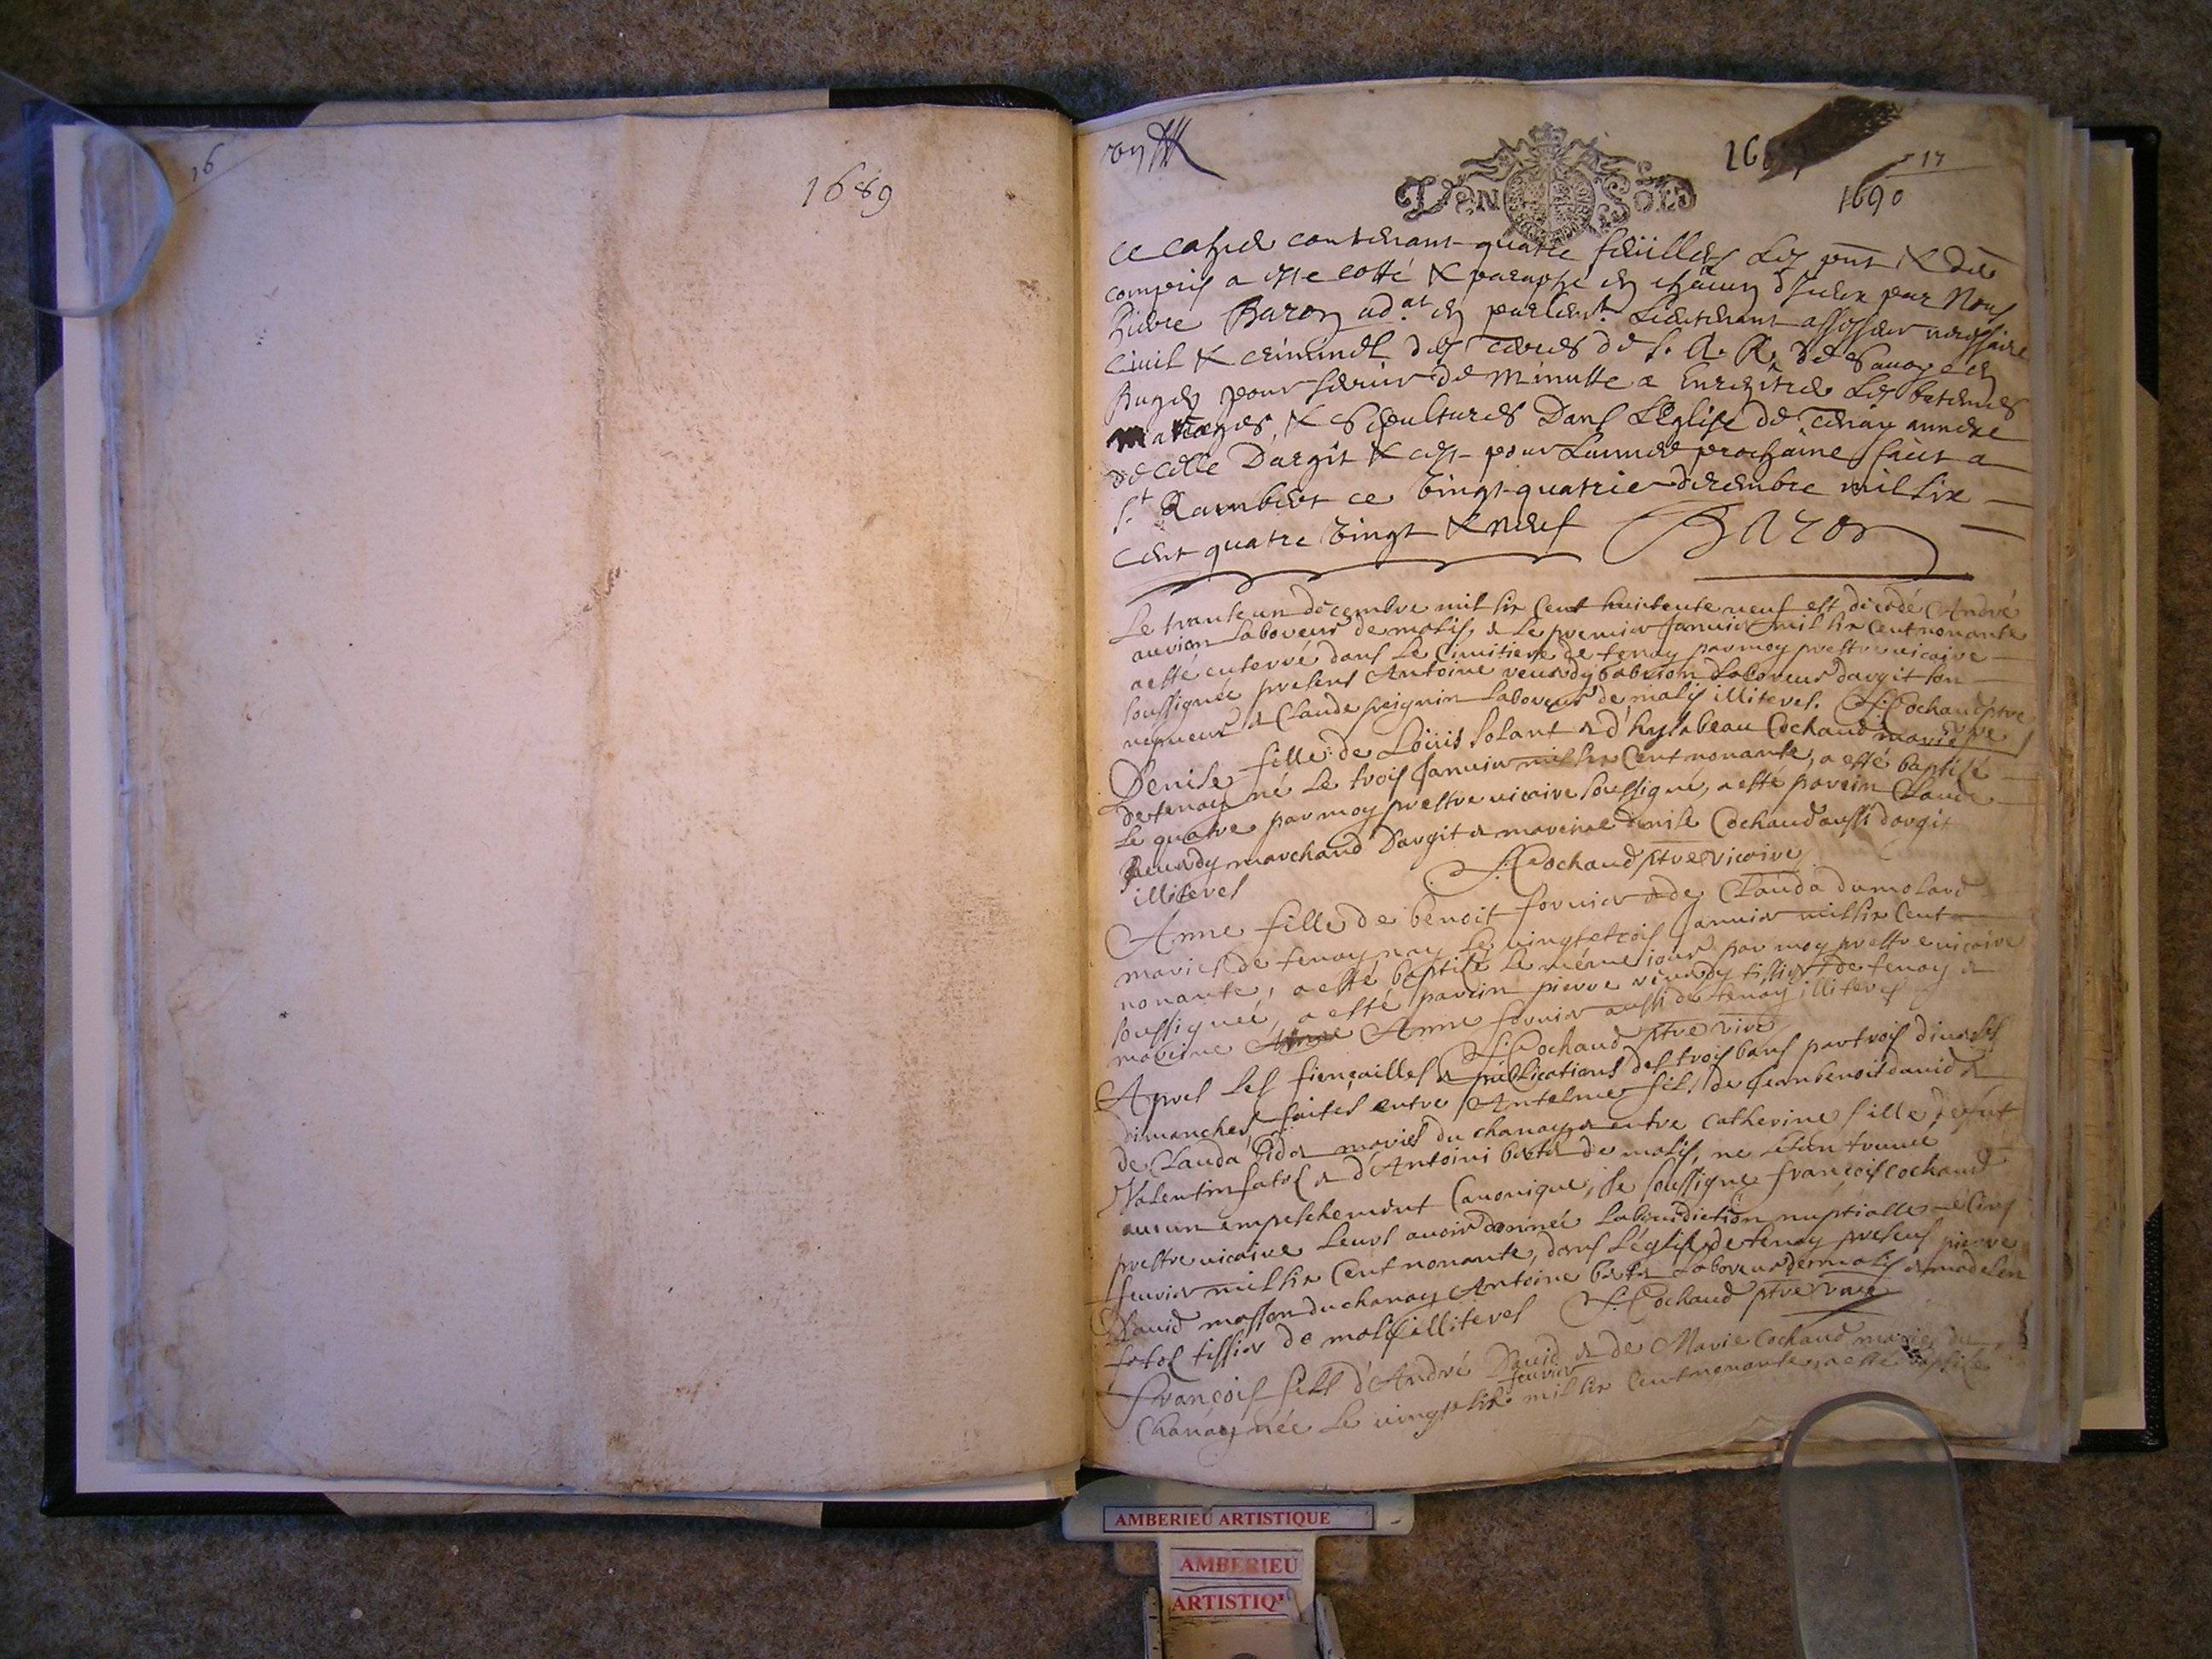 16
1689
VEN SOLS
17
1690
ce cahier contenant quatre feuilles les pnt & der
compris a este cotté & paraphé en chacun d'iceux par Nous
Baron ad.at en parlem.t Lieutenant assesseur
Civil & criminel des terres de S. A. R. de Savoye en
Bugey pour servir de minutte a Enregistrer les batemes
mariages, & Sepultures Dans L'Eglise de Tenay annexe
de celle Dargit & ce pour Lannee prochaine fait a
S.t Rambert ce vingt quatrie decembre mil six
cent quatre vingt & neuf Baron
Le trante un décembre mil six Cent huictente neuf est dicédé André
laboveur de malis, & le premier Januier mil six Cent nonante
a esté enterré dans le Cimitiere de tenay par moy prestre vicaire
soussignée presens Antoine laboveur dargit son
nepueur & Claude laboveur de malis illiteres. F. Cochaud ptre
Denise fille de Loüis solant & d'hysabeau Cochaud mariés
de tenay né le trois Januier mil six Cent nonante, a esté baptisé
le quatre par moy prestre vicaire soussigné, a esté parein Claude
marchand Dargit & mareine denise Cochaud aussi dargit
illiteres F. Cochaud ptre vicaire
Anne fille de benoit fornier & de Clauda dumolard
mariés de tenay nay le vingt et trois Januier mil six Cent
nonante, a esté baptisé le même iour par moy prestre vicaire
soussignée, a esté parein pierre tissier de tenay &
mareine Anne fornier aussi de tenay illiteres
F. Cochaud ptre vire
Apres les fiençailles & publications des trois bans par trois diuerses
dimanches faites entre Antelme fils de Jean benoit david &
de Clauda mariés du chanay & entre catherine fille de fut
Valentin fatol & d'Antoini de malis, ne s'etan trouué
aucun empeschement Canonique, Je soussigne françois cochaud
prestre vicaire leurs avoir donnée la benidiction nuptialle le cinq
feurier mil six Cent nonante, dans l'église de tenay presens pierre
David masson du chanay Antoine laboveur de malis &
fatol tissier de malis illiteres F. Cochaud ptre vire
françois fils d'André David & de Marie Cochaud mariés du
feurier
Chanay née le vingt six mil six Cent nonante, a esté baptisé
AMBERIEU ARTISTIQUE
AMBERIEU
ARTISTIQ